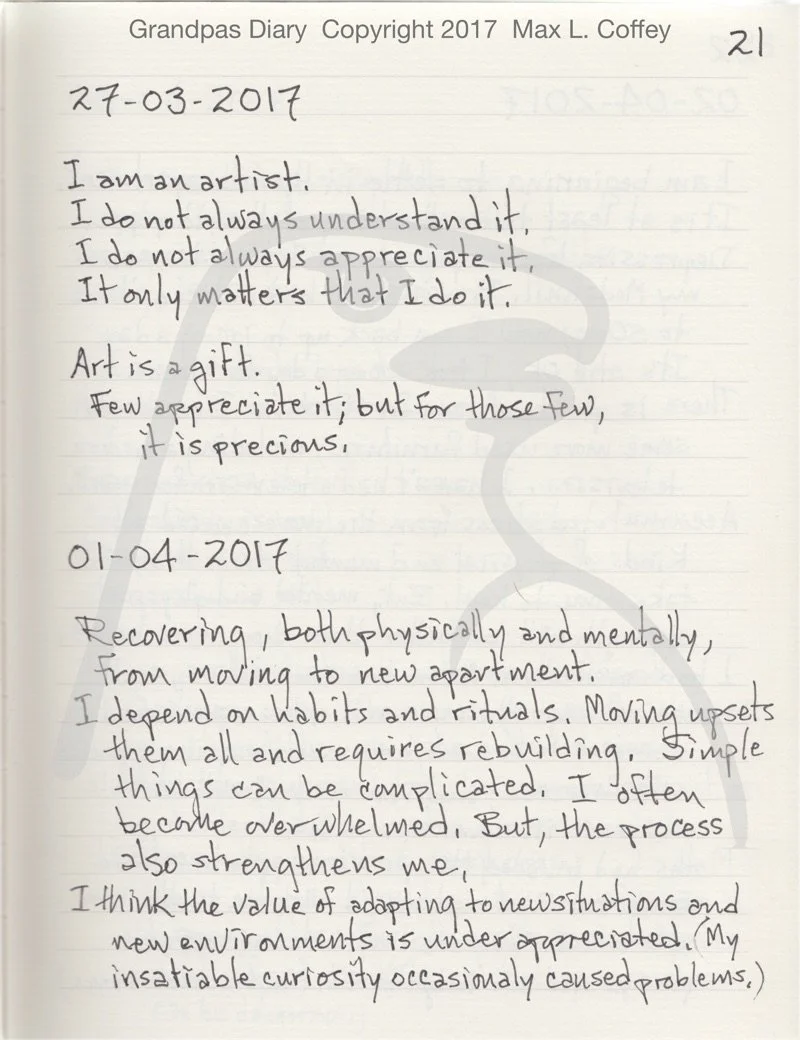 Grandpas Diary Copyright 2017 Max L. Coffey
21
27-03-2017
I am an artist.
I do not always understand it.
I do not always appreciate it.
It only matters that I do it.
Art is a gift.
Few appreciate it; but for those few,
it is precious.
01-04-2017
Recovering, both physically and mentally,
from moving to new apartment.
I depend on habits and rituals. Moving upsets
them all and requires rebuilding. Simple
things can be complicated. I often
become overwhelmed. But, the process
also strengthens me.
I think the value of adapting to new situations and
new environments is under appreciated. (My
insatiable curiosity occasionaly caused problems.)